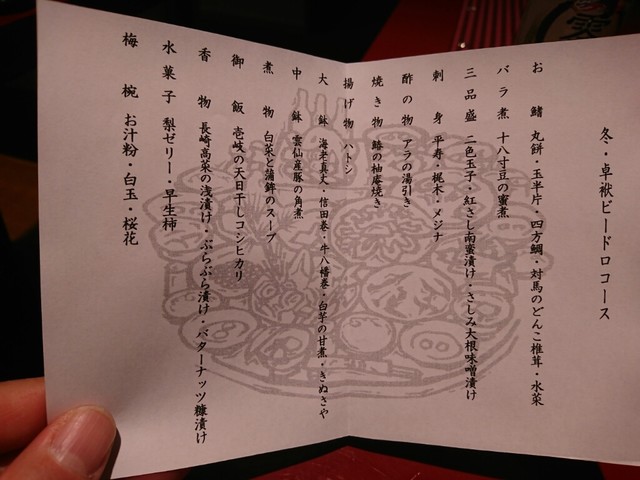 冬・卓袱ビードロコース
お鰭 丸餅・玉半片・四方鯛・対馬のどんこ椎茸・水菜
バラ煮 十八寸豆の蜜煮
三品盛 二色玉子・紅さし南蛮漬け・さしみ大根味噌漬け
刺身 平寿・梶木・メジナ
酢の物 アラの湯引き
焼き物 鰆の柚庵焼き
揚げ物 ハトシ
大鉢 海老真丈・信田巻・牛八幡巻・白芋の甘煮・きぬさや
中鉢 雲仙産豚の角煮
煮物 白菜と蒲鉾のスープ
御飯 壱岐の天日干しコシヒカリ
香物 長崎高菜の浅漬け・ぶらぶら漬け・バターナッツ糠漬け
水菓子 梨ゼリー・早生柿
梅椀 お汁粉・白玉・桜花